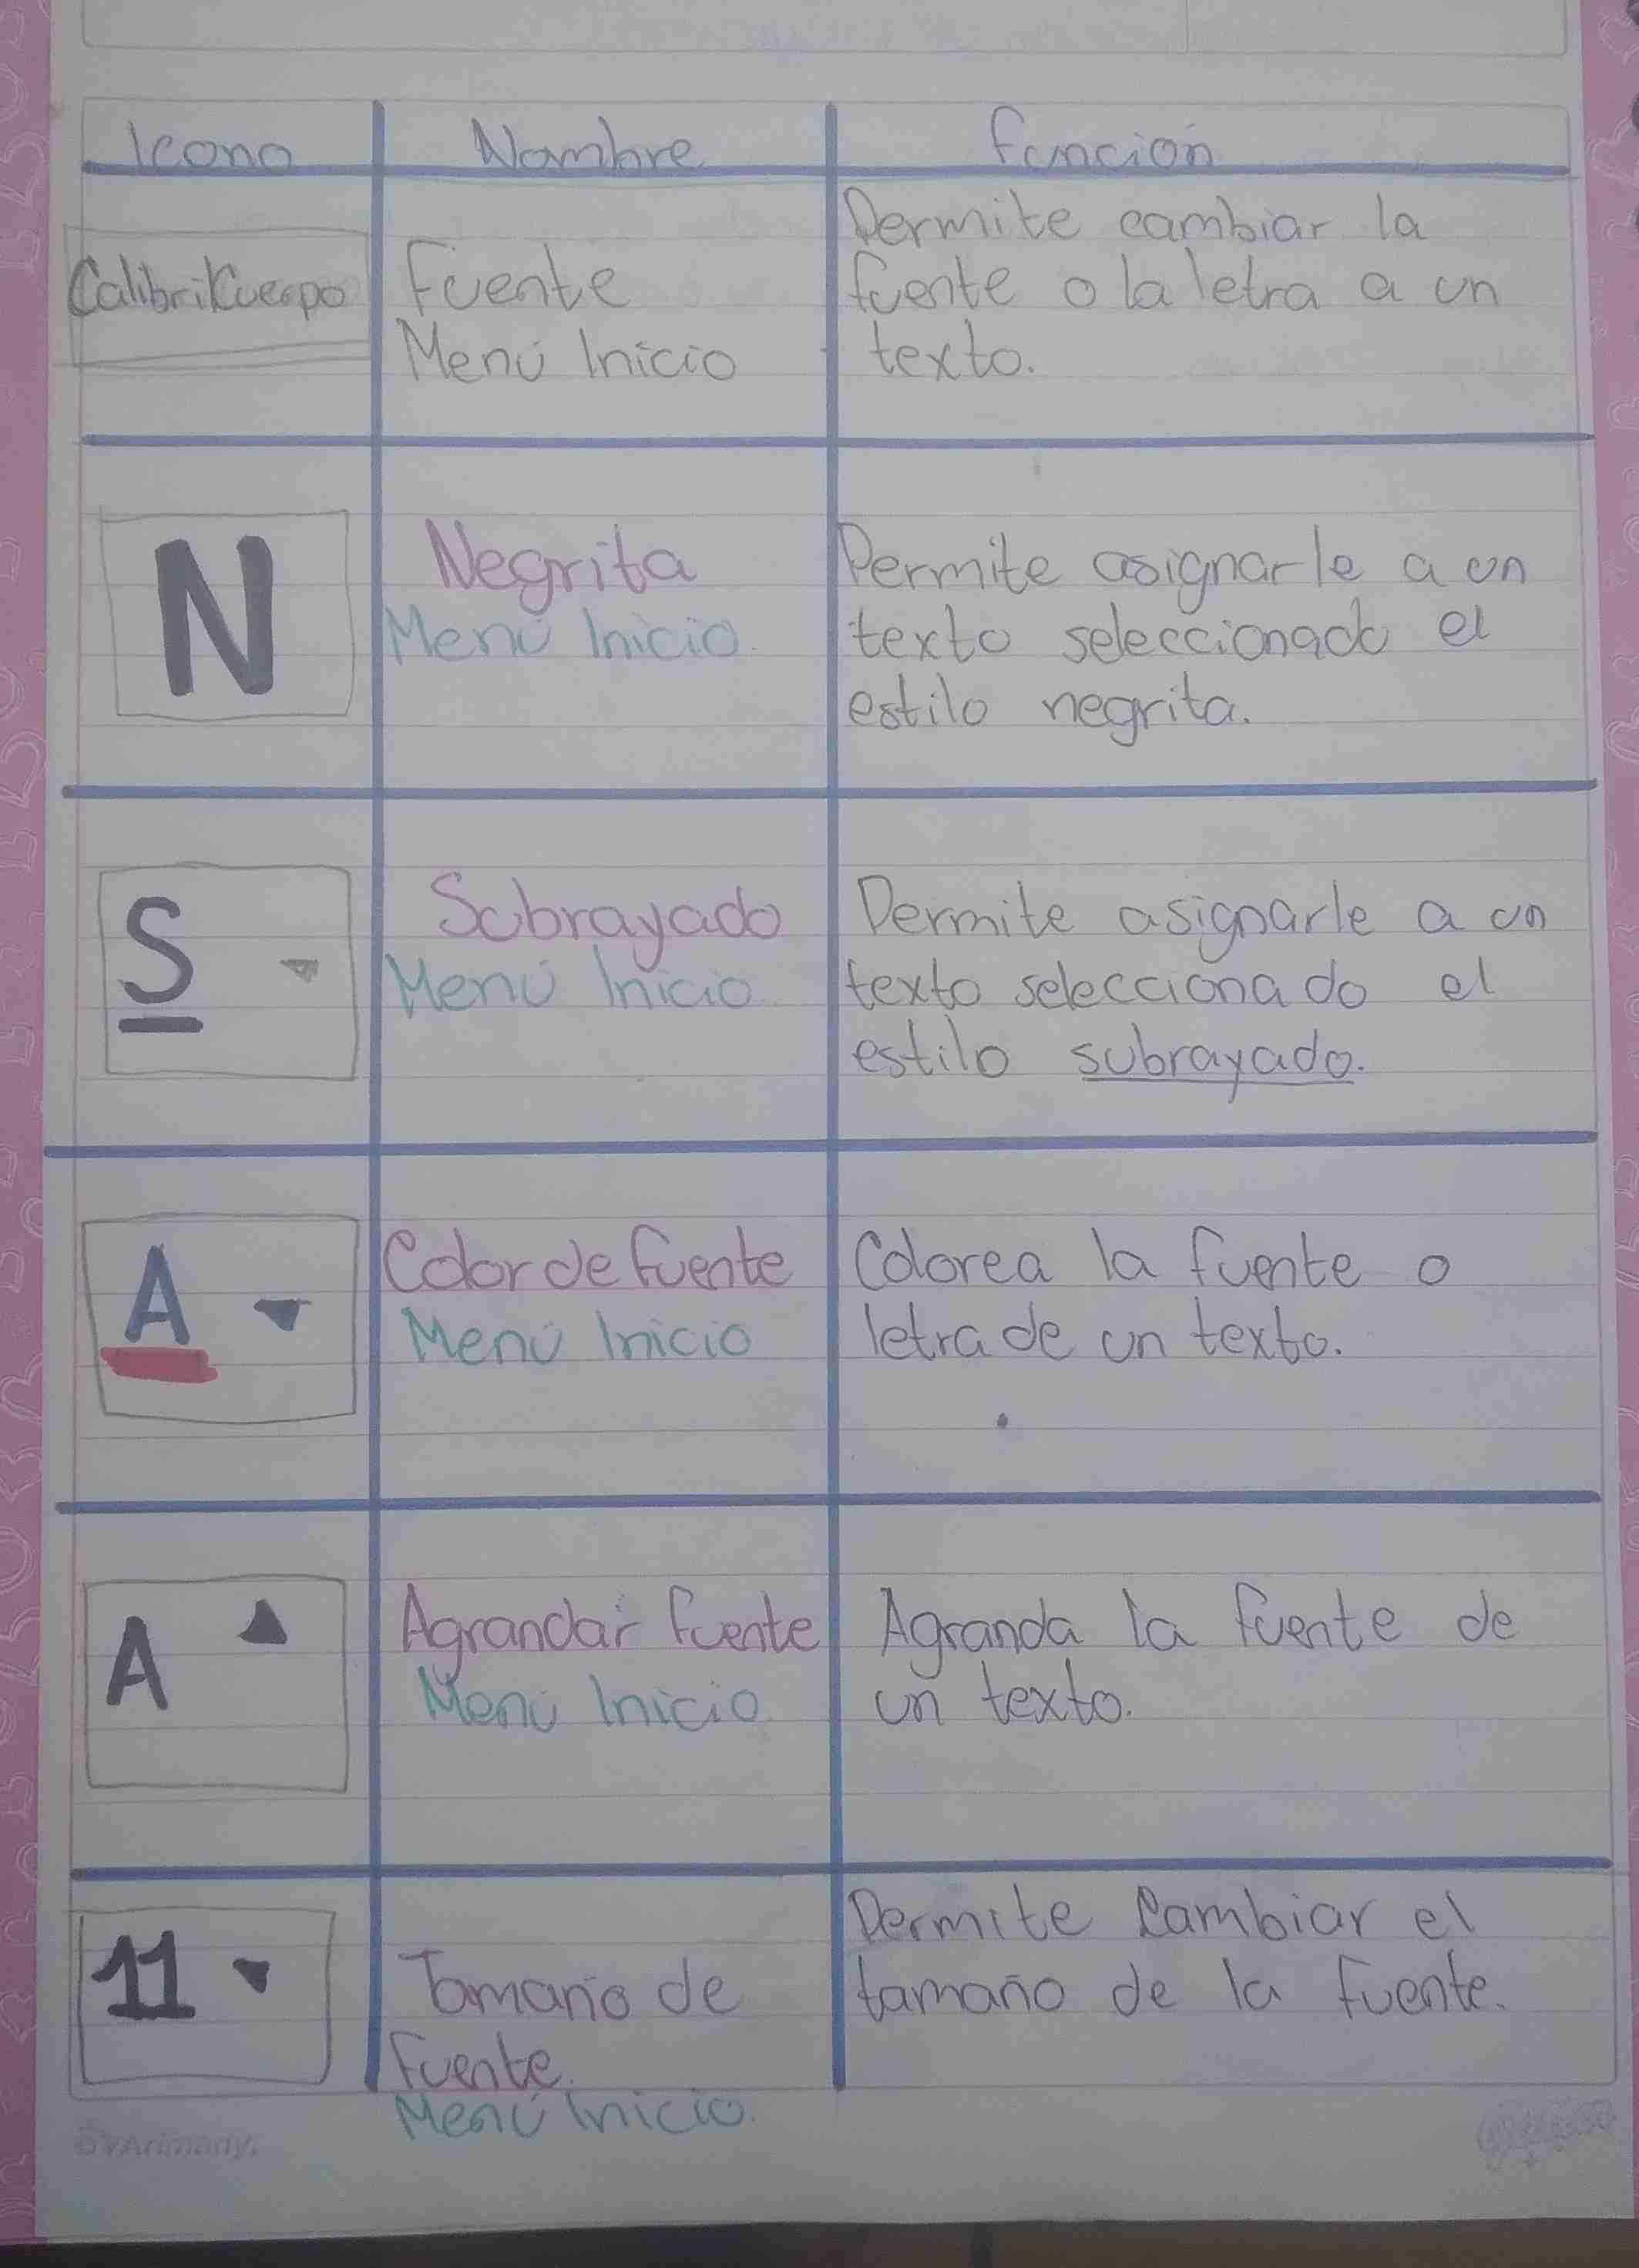 Icono Nombre Función
Calibri(Cuerpo
Fuente
Menú Inicio
Permite cambiar la
fuente o la letra a un
texto.
N
Negrita
Menú Inicio.
Permite asignarle a un
texto seleccionado el
estilo negrita.
S
Subrayado
Menú Inicio
Permite asignarle a un
texto seleccionado el
estilo subrayado.
A
Color de fuente
Menú Inicio
Colorea la fuente o
letra de un texto.
A
Agrandar fuente
Menú Inicio
Agranda la fuente de
un texto.
11
Tamaño de
fuente.
Menú Inicio.
Permite Cambiar el
tamaño de la fuente.
Arimany.